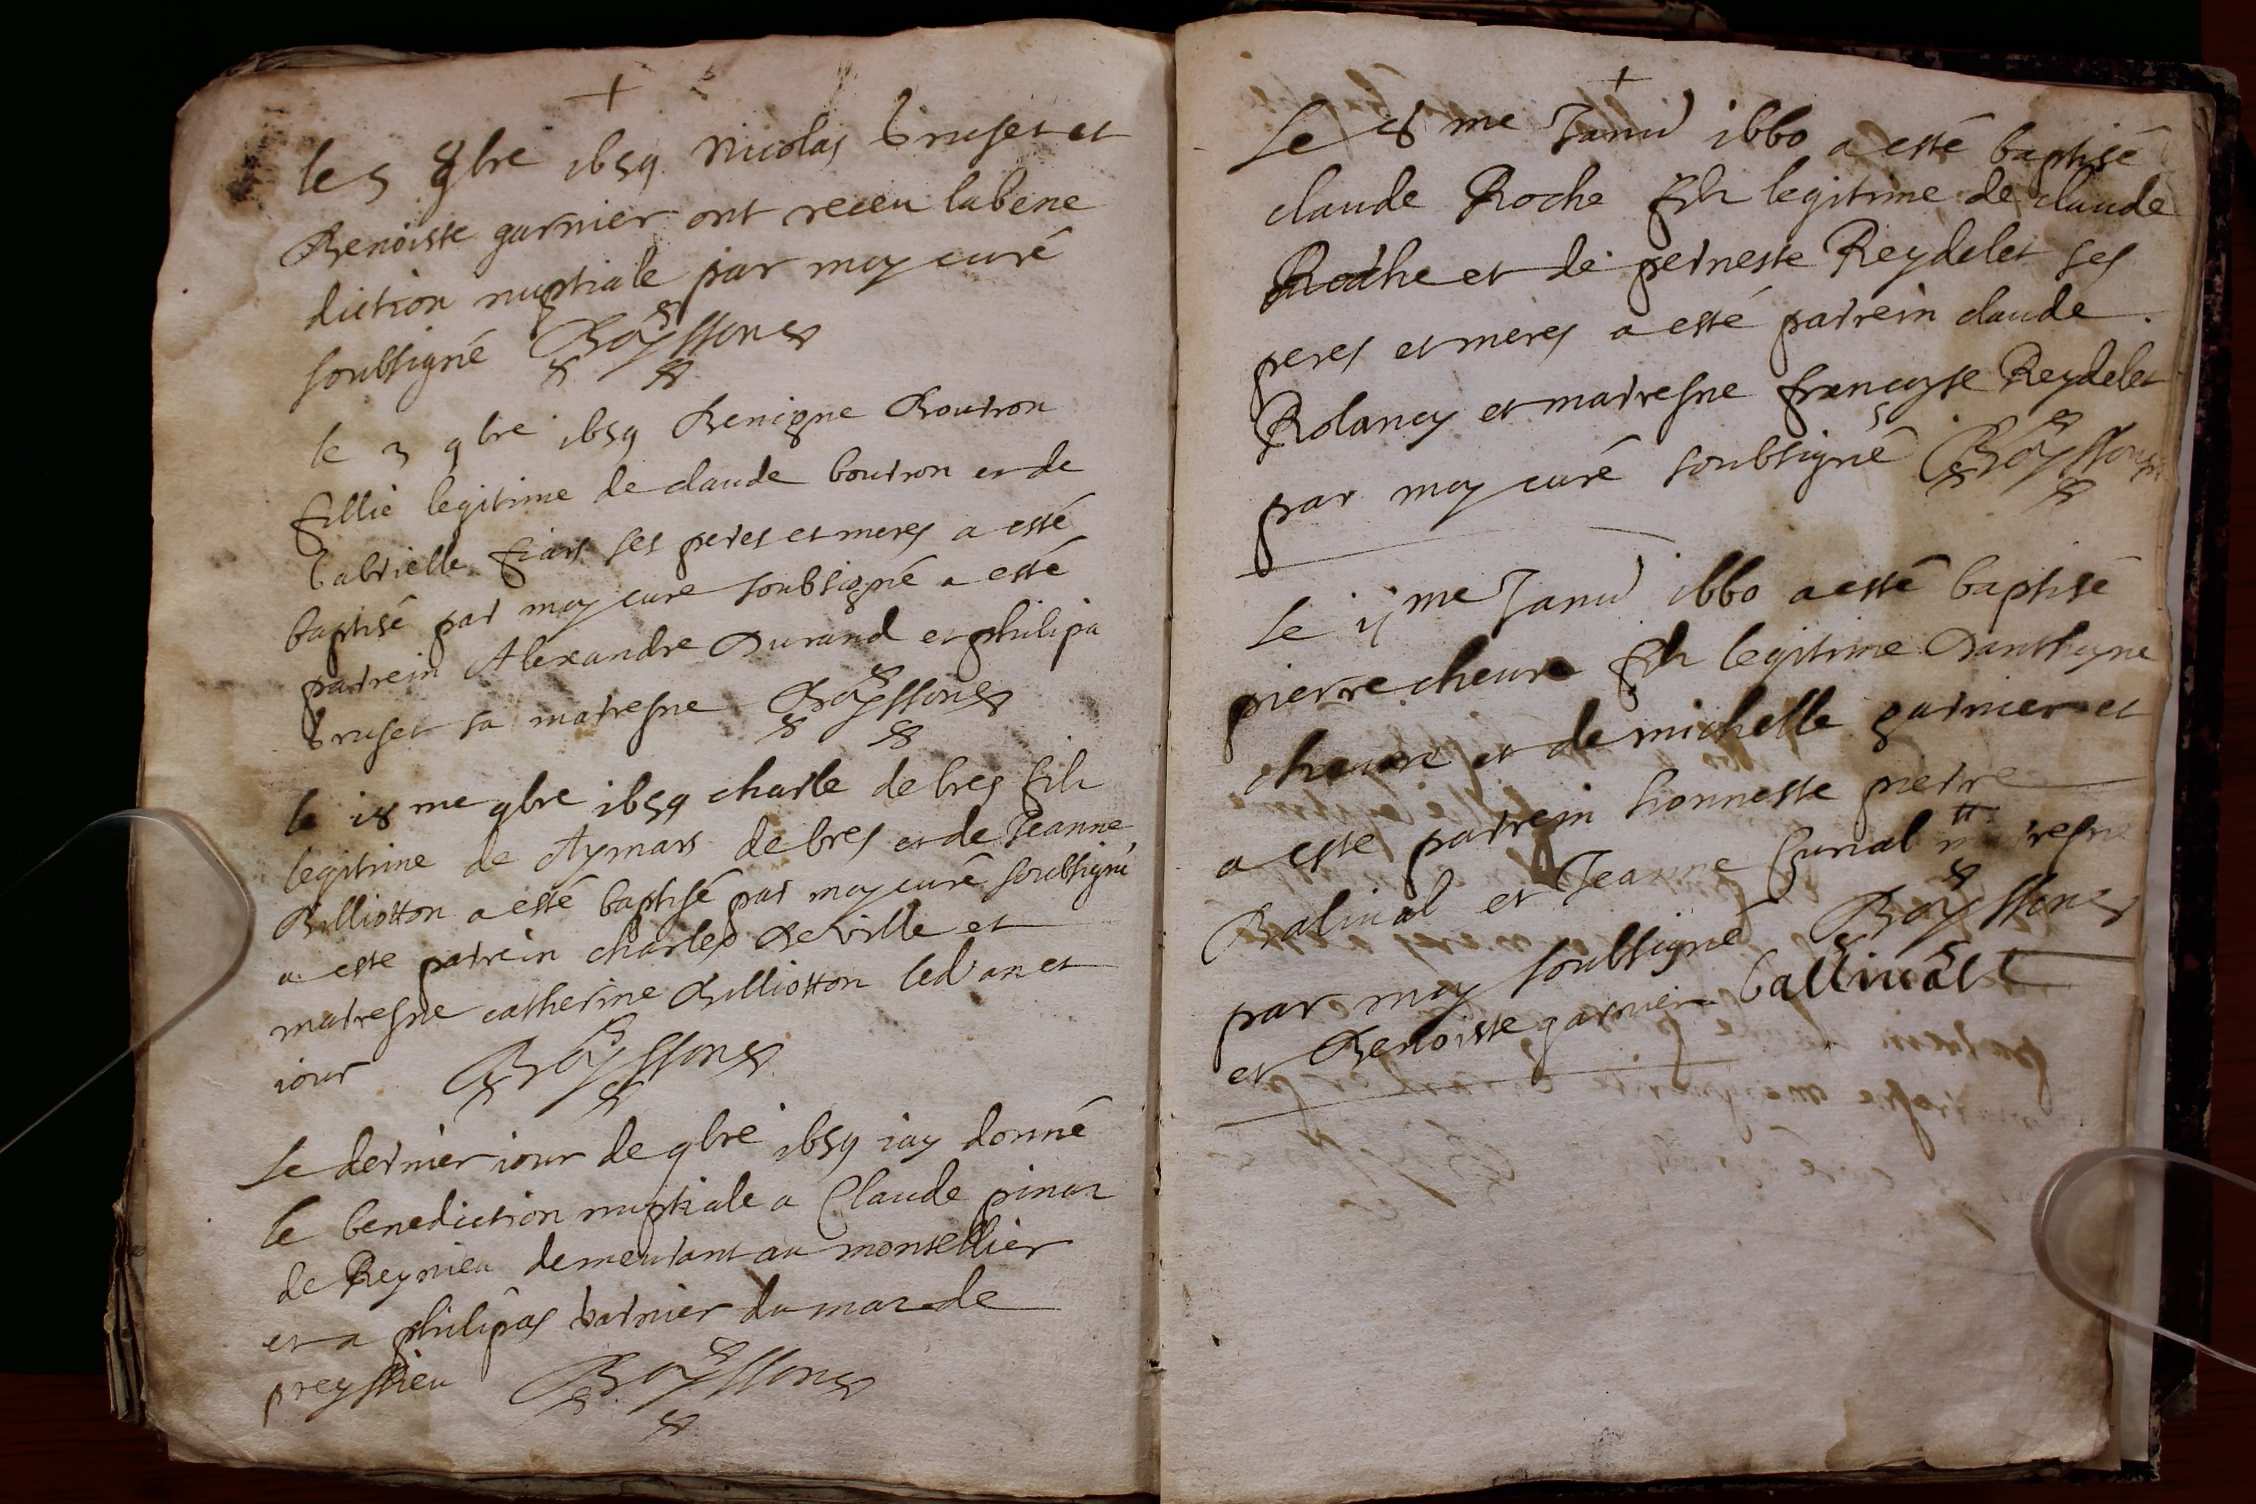 +
le 5 8bre 1659 Nicolas bruset et
Benoiste garnier ont receu la bene
diction nuptiale par moy curé
soubsigné Boyssone
le 3 9bre 1659 Benigne Boutron
fillie legitime de claude boutron et de
gabrielle ses peres et meres a esté
baptisé par moy cure soubsigné a esté
patrein Alexandre Durand et philipa
bruset sa matresne Boyssone
le 18 me 9bre 1659 charle debres fils
legitime de Aymars debres et de Jeanne
Billiotton a esté baptisé par moy curé soubsigné
a este patrein charles Deville et
matresne catherine Billiotton led an et
iour Boyssone
Le dernier iour de 9bre 1659 iay donné
le benediction nuptiale a Claude pinaz
de Reynieu demeurant au montellier
et a philipas varnier du mas de
preyssieu Boyssone
+
Le 8 me Janv 1660 a esté baptisé
claude Roche fils legitime de claude
Roche et de perneste Reydelet ses
peres et meres a esté patrein claude
Rolancy et matresne françoyse Reydelet
par moy curé soubsigné Boyssone
Le 11 me Janv 1660 a esté baptisé
pierre cheure fils legitime Danthoyne
cheure et de michelle garnier et
a este patrein honneste pierre
Balival et Jeanne matresne
par moy soubsigné Boyssone
et Benoiste garnier ballivalt